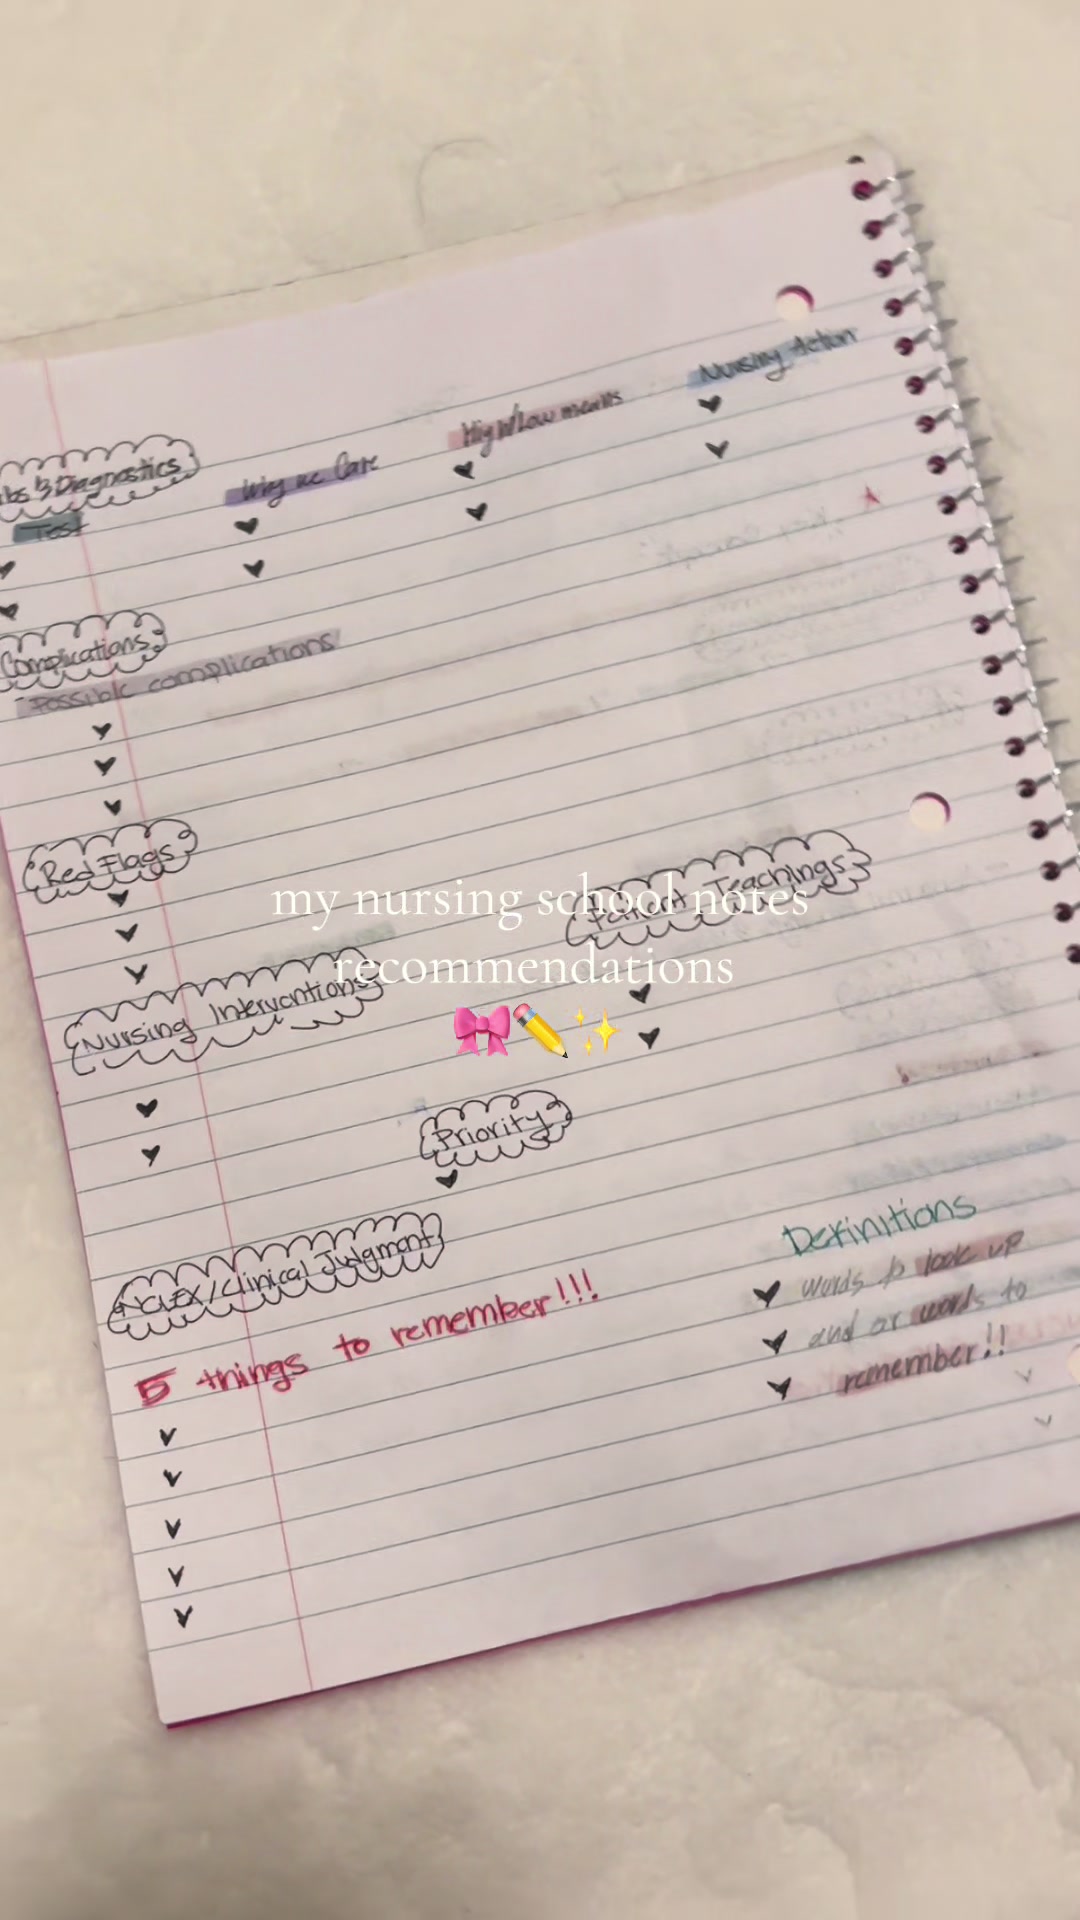 Nursing Action
High/low means
Why we Care
Labs & Diagnostics
Test
Complications
Possible complications
Red Flags
Patient Teachings
my nursing school notes
recommendations
🎀✏️✨
Nursing Interventions
Priority
NCLEX/Clinical Judgment
5 things to remember!!!
Definitions
words to look up
and or words to
remember!!